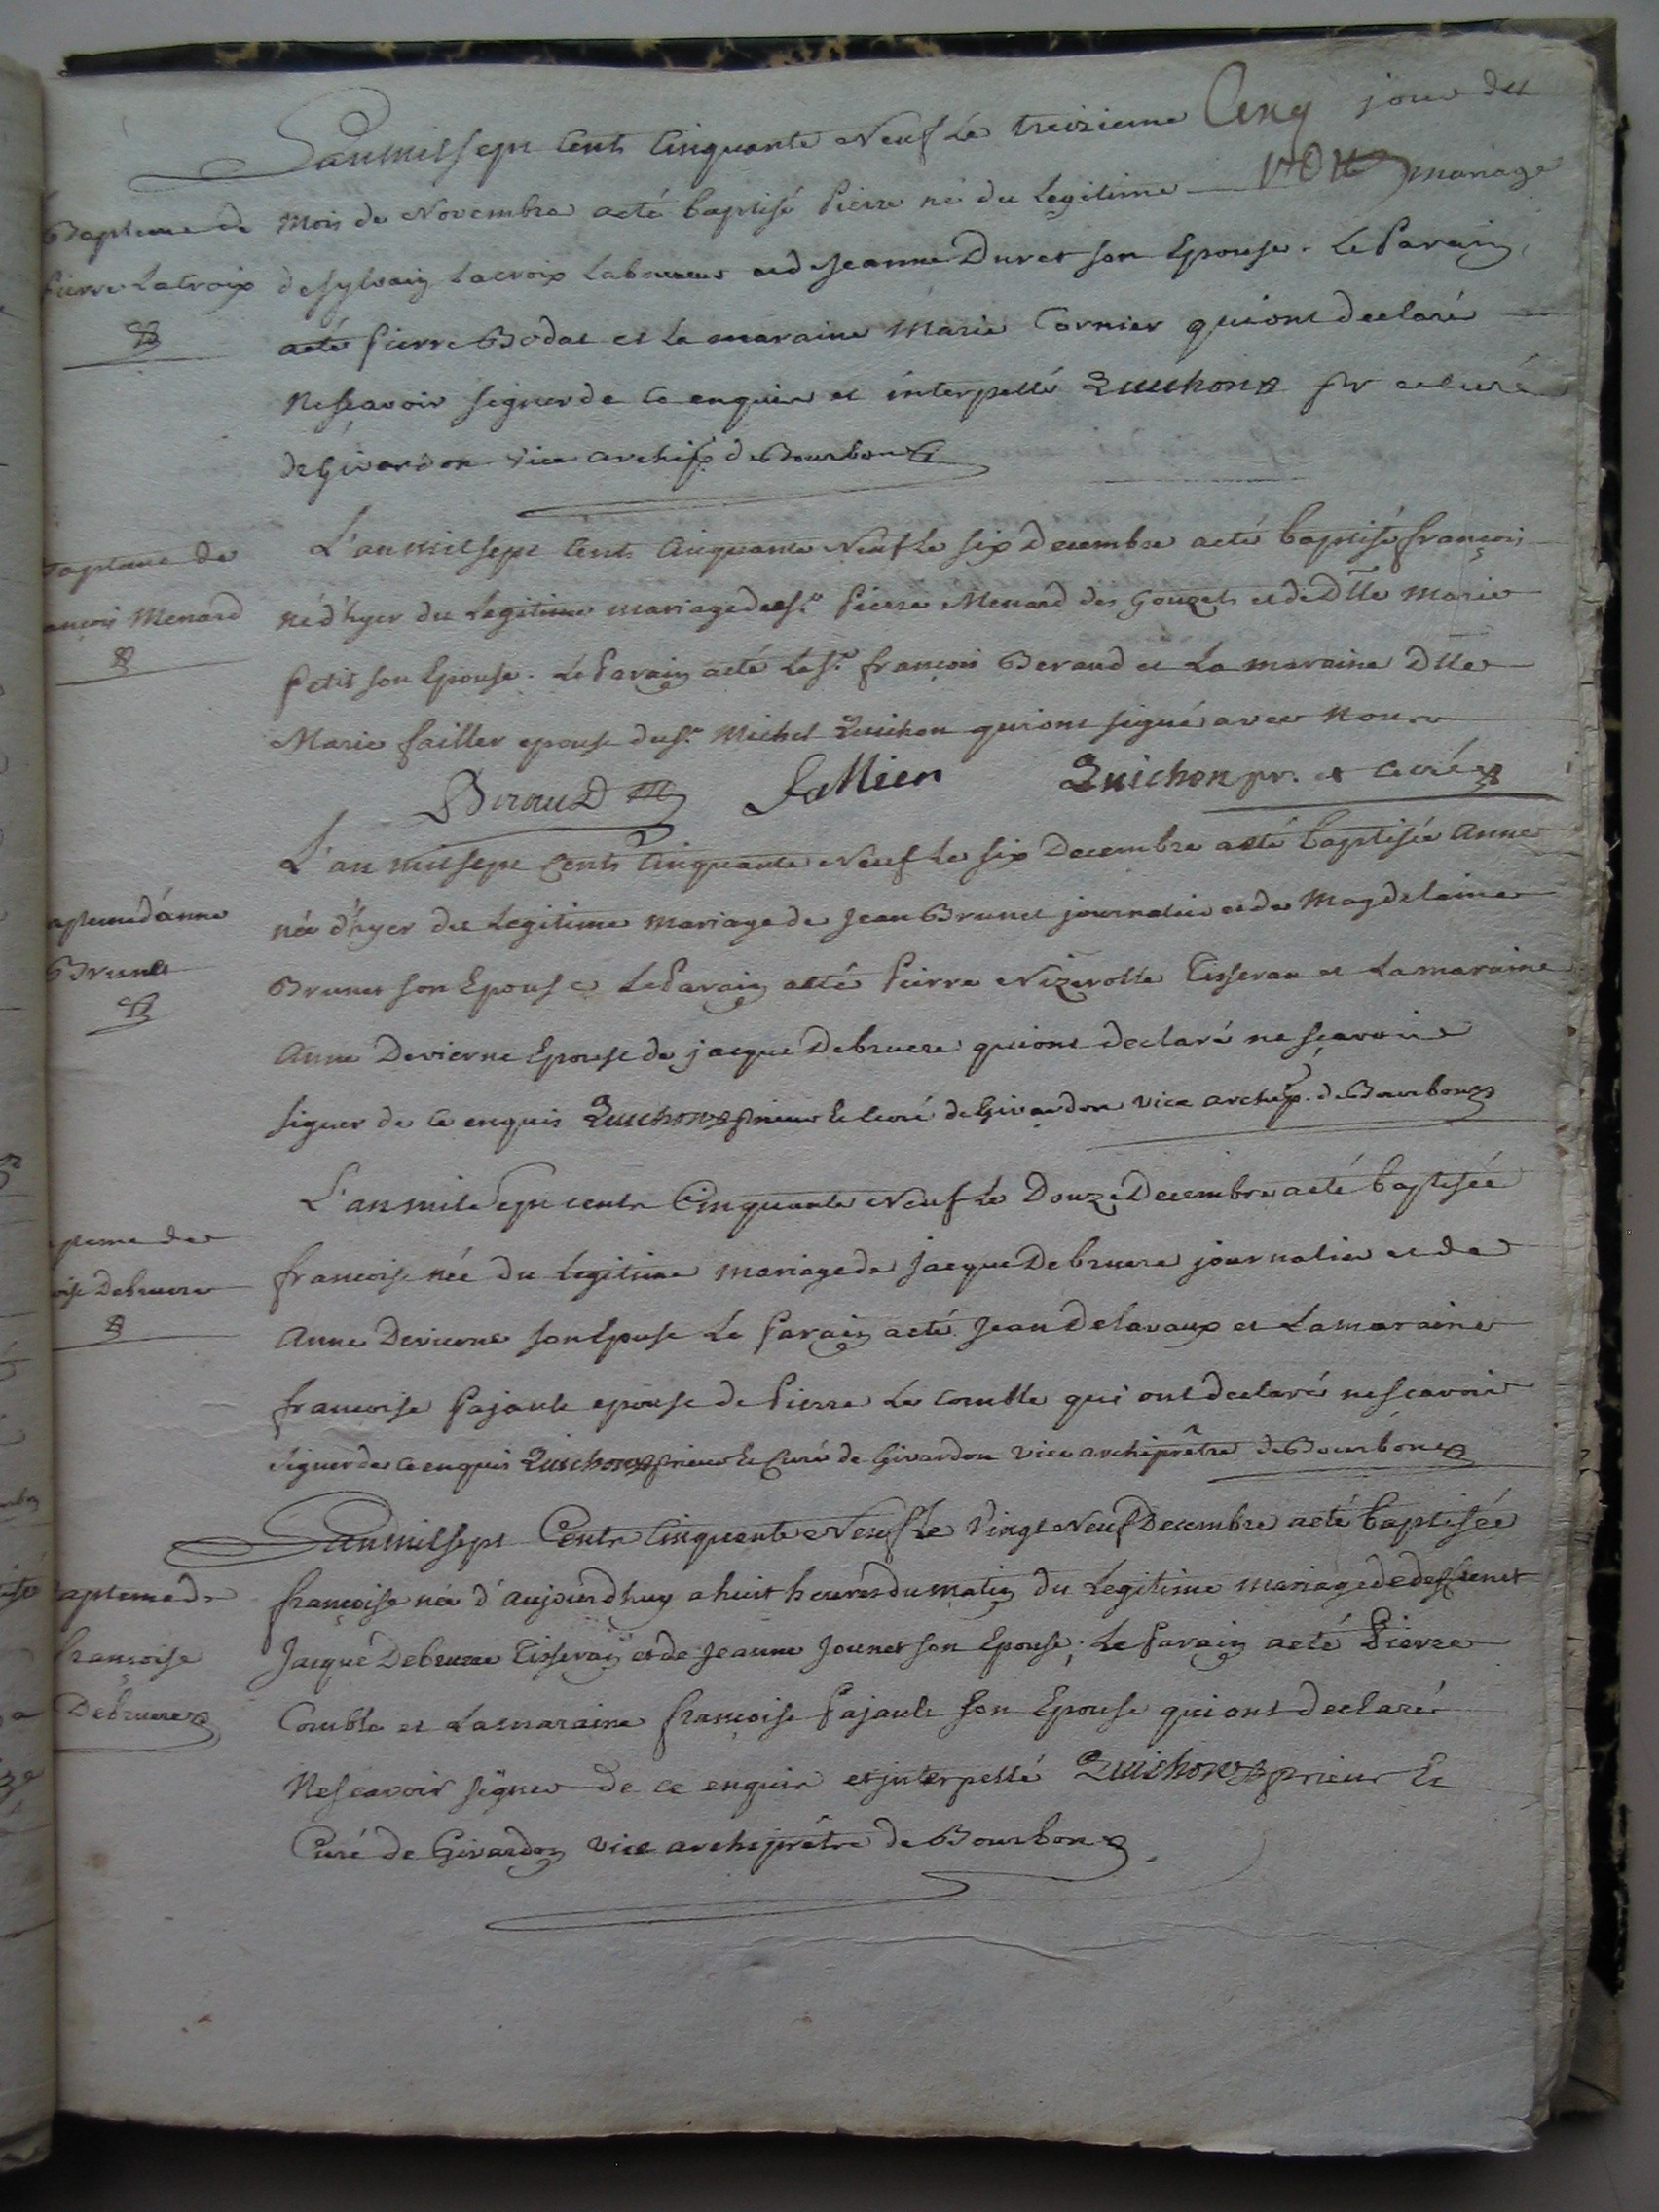 L'an mil sept Cents Cinquante Neuf Le treizieme Cinq jour du
Bapteme de
Mois de Novembre aeté baptisé Pierre né du Legitime mariage
Pierre Lacroix
de sylvain Lacroix Laboureur et de Jeanne Duret son Epouse. Le Parain
aeté Pierre Bodat et la maraine Marie Cornier qui ont declaré
ne sçavoir signer de ce enquis et interpellé Quichon pr et curé
de Givardon vice archip. de Bourbon
L'an mil sept Cents Cinquante Neuf Le six Decembre aeté baptisé françois
apteme de
né d'hyer du Legitime mariage de sr. Pierre Menard des Gouzets et de Dlle Marie
ançois Menard
Petit son Epouse. Le Parain aeté Le sr. françois Beraud et La maraine Dlle
Marie failler epouse du sr. Michel Quichon qui ont signé avec Nous
Beraud fallier Quichon pr. et curé
L'an mil sept Cents Cinquante Neuf Le six Decembre aeté baptisée Anne
apteme d'anne
née d'hyer du Legitime Mariage de Jean Brunet journalier et de Magdelaine
Brunet
Brunet son Epouse Le Parain aeté Pierre Nizerolle Tisseran et La maraine
Anne Devierne Epouse de jacque Debruere qui ont declaré ne sçavoir
signer de ce enquis Quichon prieur et curé de Givardon vice archip. de Bourbon
L'an mil sept cents Cinquante Neuf Le Douze Decembre aeté baptisée
pteme de
francoise née du Legitime mariage de jacque Debruere journalier et de
oise Debruere
Anne Devierne son Epouse Le Parain aeté Jean Delavaux et La maraine
francoise Pajault epouse de Pierre Le comble qui ont declaré ne scavoir
signer de ce enquis Quichon prieur et Curé de Givardon vice archiprêtre de Bourbon
L'an mil sept Cents Cinquante Neuf Le vingt Neuf Decembre aeté baptisée
aptemede
françoise née d'aujourdhuy a huit heures du matin du Legitime mariage de deffunct
françoise
Jacque Debruere Tisseran et de Jeanne Jounet son Epouse; Le Parain aeté Pierre
Debruere
Comble et La maraine françoise Pajault son Epouse qui ont declaré
Ne scavoir signer de ce enquis et interpellé Quichon prieur et
Curé de Givardon vice archiprêtre de Bourbon